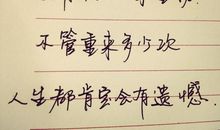 不管重来多少次
人生都肯定会有遗憾.